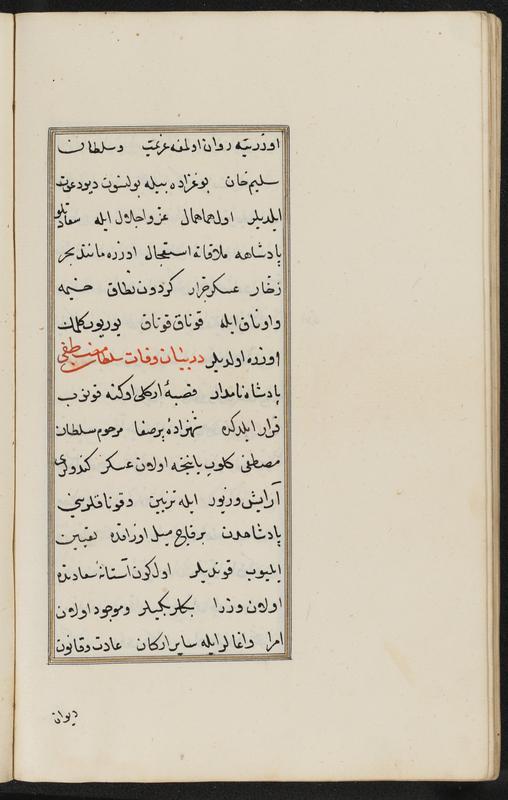 اوزرینه روان اولمغه عزیمت و سلطان
سلیم خان بو غزاده بیله بولنسون دیو دعوت
ایلدیلر اول همای عز و اجلال ایله سعادتلو
پادشاهه ملاقاته استعجال اوزره مانند بحر
زخار عسکر جرار کردون نطاق خیمه
و اوتاق ایله قوناق قوناق یوریوب کلمك
اوزره اولدیلر در بیان وفات سلطان مصطفی
پادشاه نامدار قصبۀ ارکلی اوکنه قونوب
قرار ایلدکده شهزادۀ پرصفا مرحوم سلطان
مصطفی کلوب یاننجه اولان عسکر کندولری
آرایش و زیور ایله تزیین و قوناقلرینی
پادشاهدن بر قاچ میل اوزاقده تعیین
ایلیوب قوندیلر اول کون آستانۀ سعادتده
اولان وزرا بکلربکیلر و موجود اولان
امرا و اغالر ایله سایر ارکان عادت و قانون
دیوان